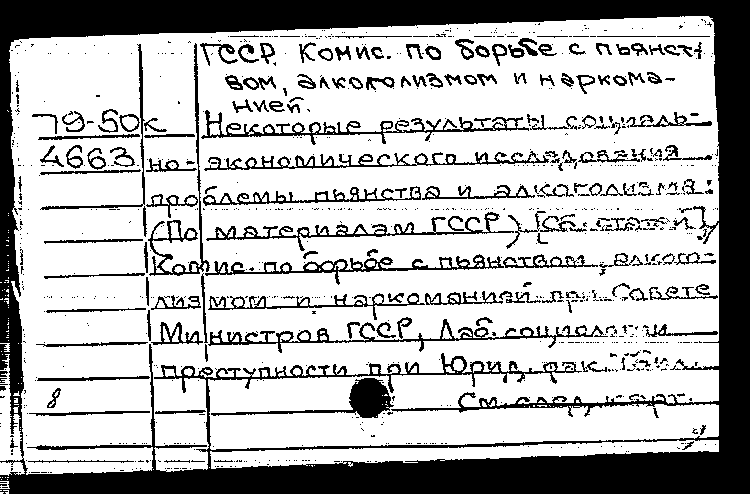 ГССР. Комис. по борьбе с пьянст-
вом, алкоголизмом и наркома-
нией.
79-50к Некоторые результаты социаль-
4663 но-экономического исследования
проблемы пьянства и алкоголизма:
(По материалам ГССР) [Сб. статей]
Комис. по борьбе с пьянством, алкого-
лизмом и наркоманией при Совете
Министров ГССР, Лаб. социологии
преступности при Юрид. фак. Тбил.
8 См. след. карт.